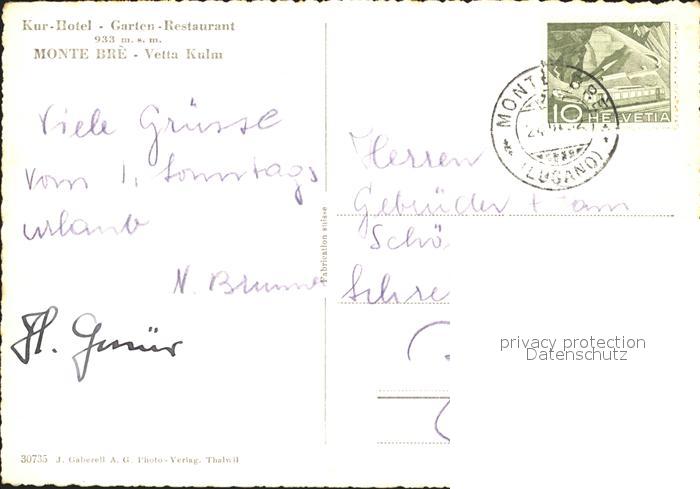 Kur-Hotel - Garten-Restaurant
933 m. s. m.
MONTE BRÈ - Vetta Kulm
Viele Grüsse
vom 1. Sonntags
urlaub
N. Brunner
H. Gmür
Fabrication suisse
10 HELVETIA
MONTE BRE
(LUGANO)
Herren
Gebrüder
Schö
Schre
privacy protection
Datenschutz
30735 J. Gaberell A. G. Photo-Verlag. Thalwil